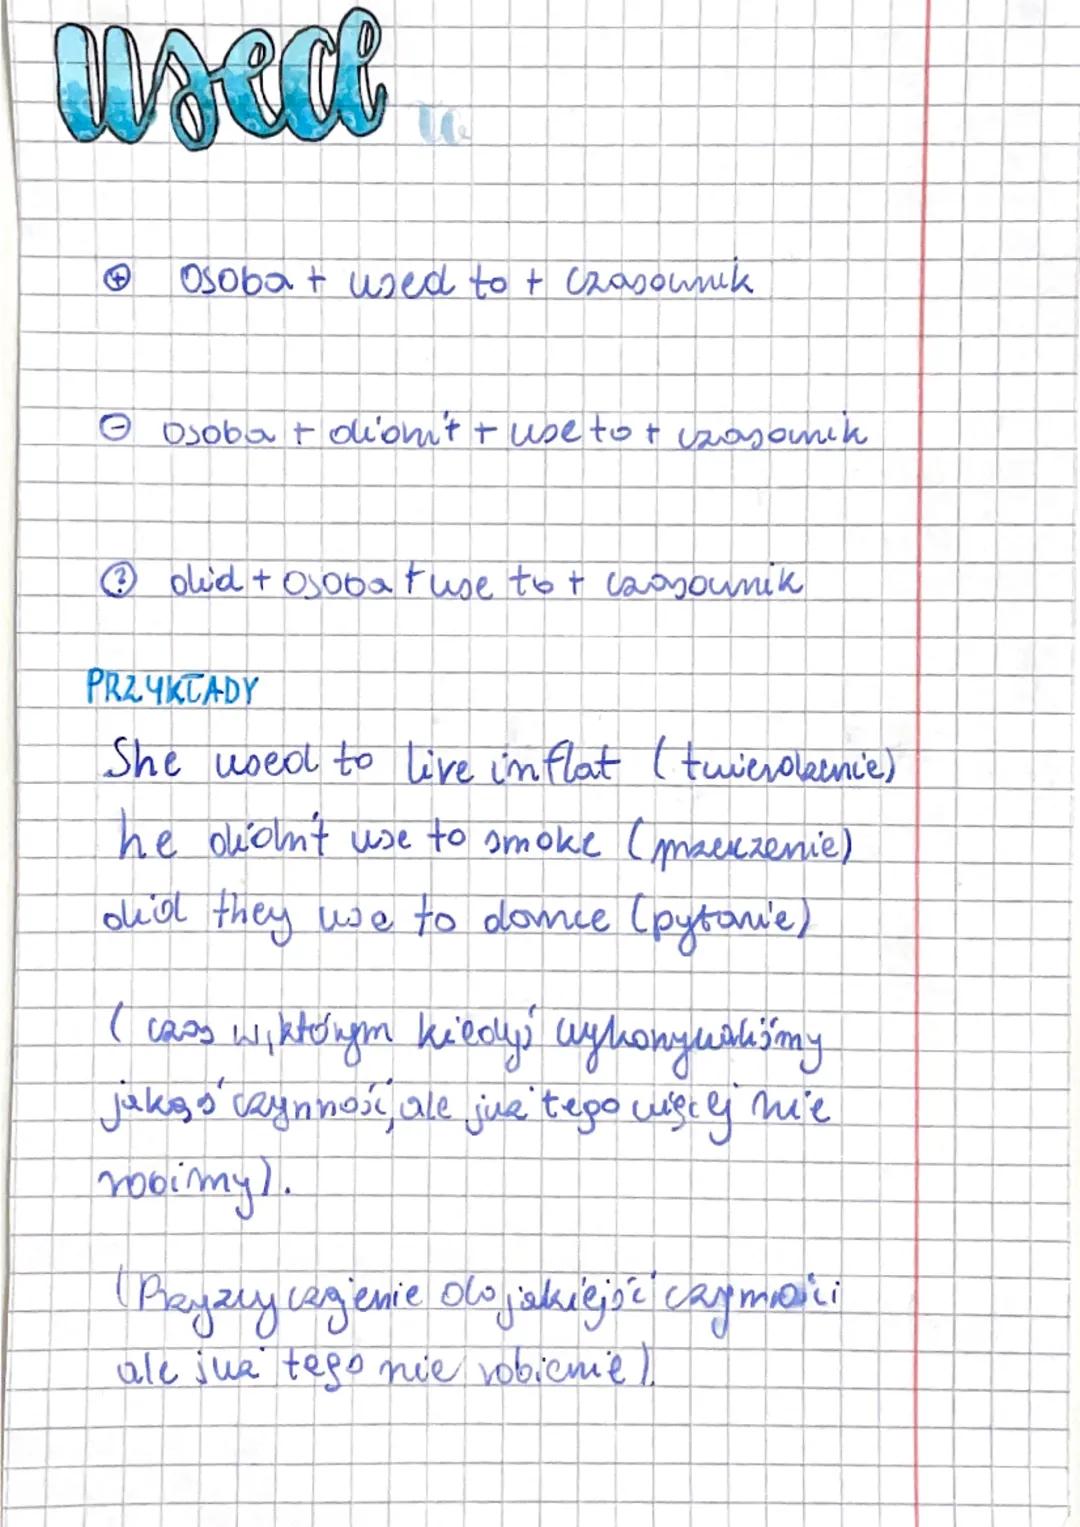 used
⊕ osoba + used to + czasownik
⊖ osoba + didn't + use to + czasownik
? did + osoba + use to + czasownik
PRZYKŁADY
She used to live in flat (twierdzenie)
he didn't use to smoke (przeczenie)
did they use to dance (pytanie)
(czas w, którym kiedyś wykonywaliśmy
jakąś czynność, ale już tego więcej nie
robimy).
(Przyzwyczajenie do jakiejść czynności
ale już tego nie robienie).